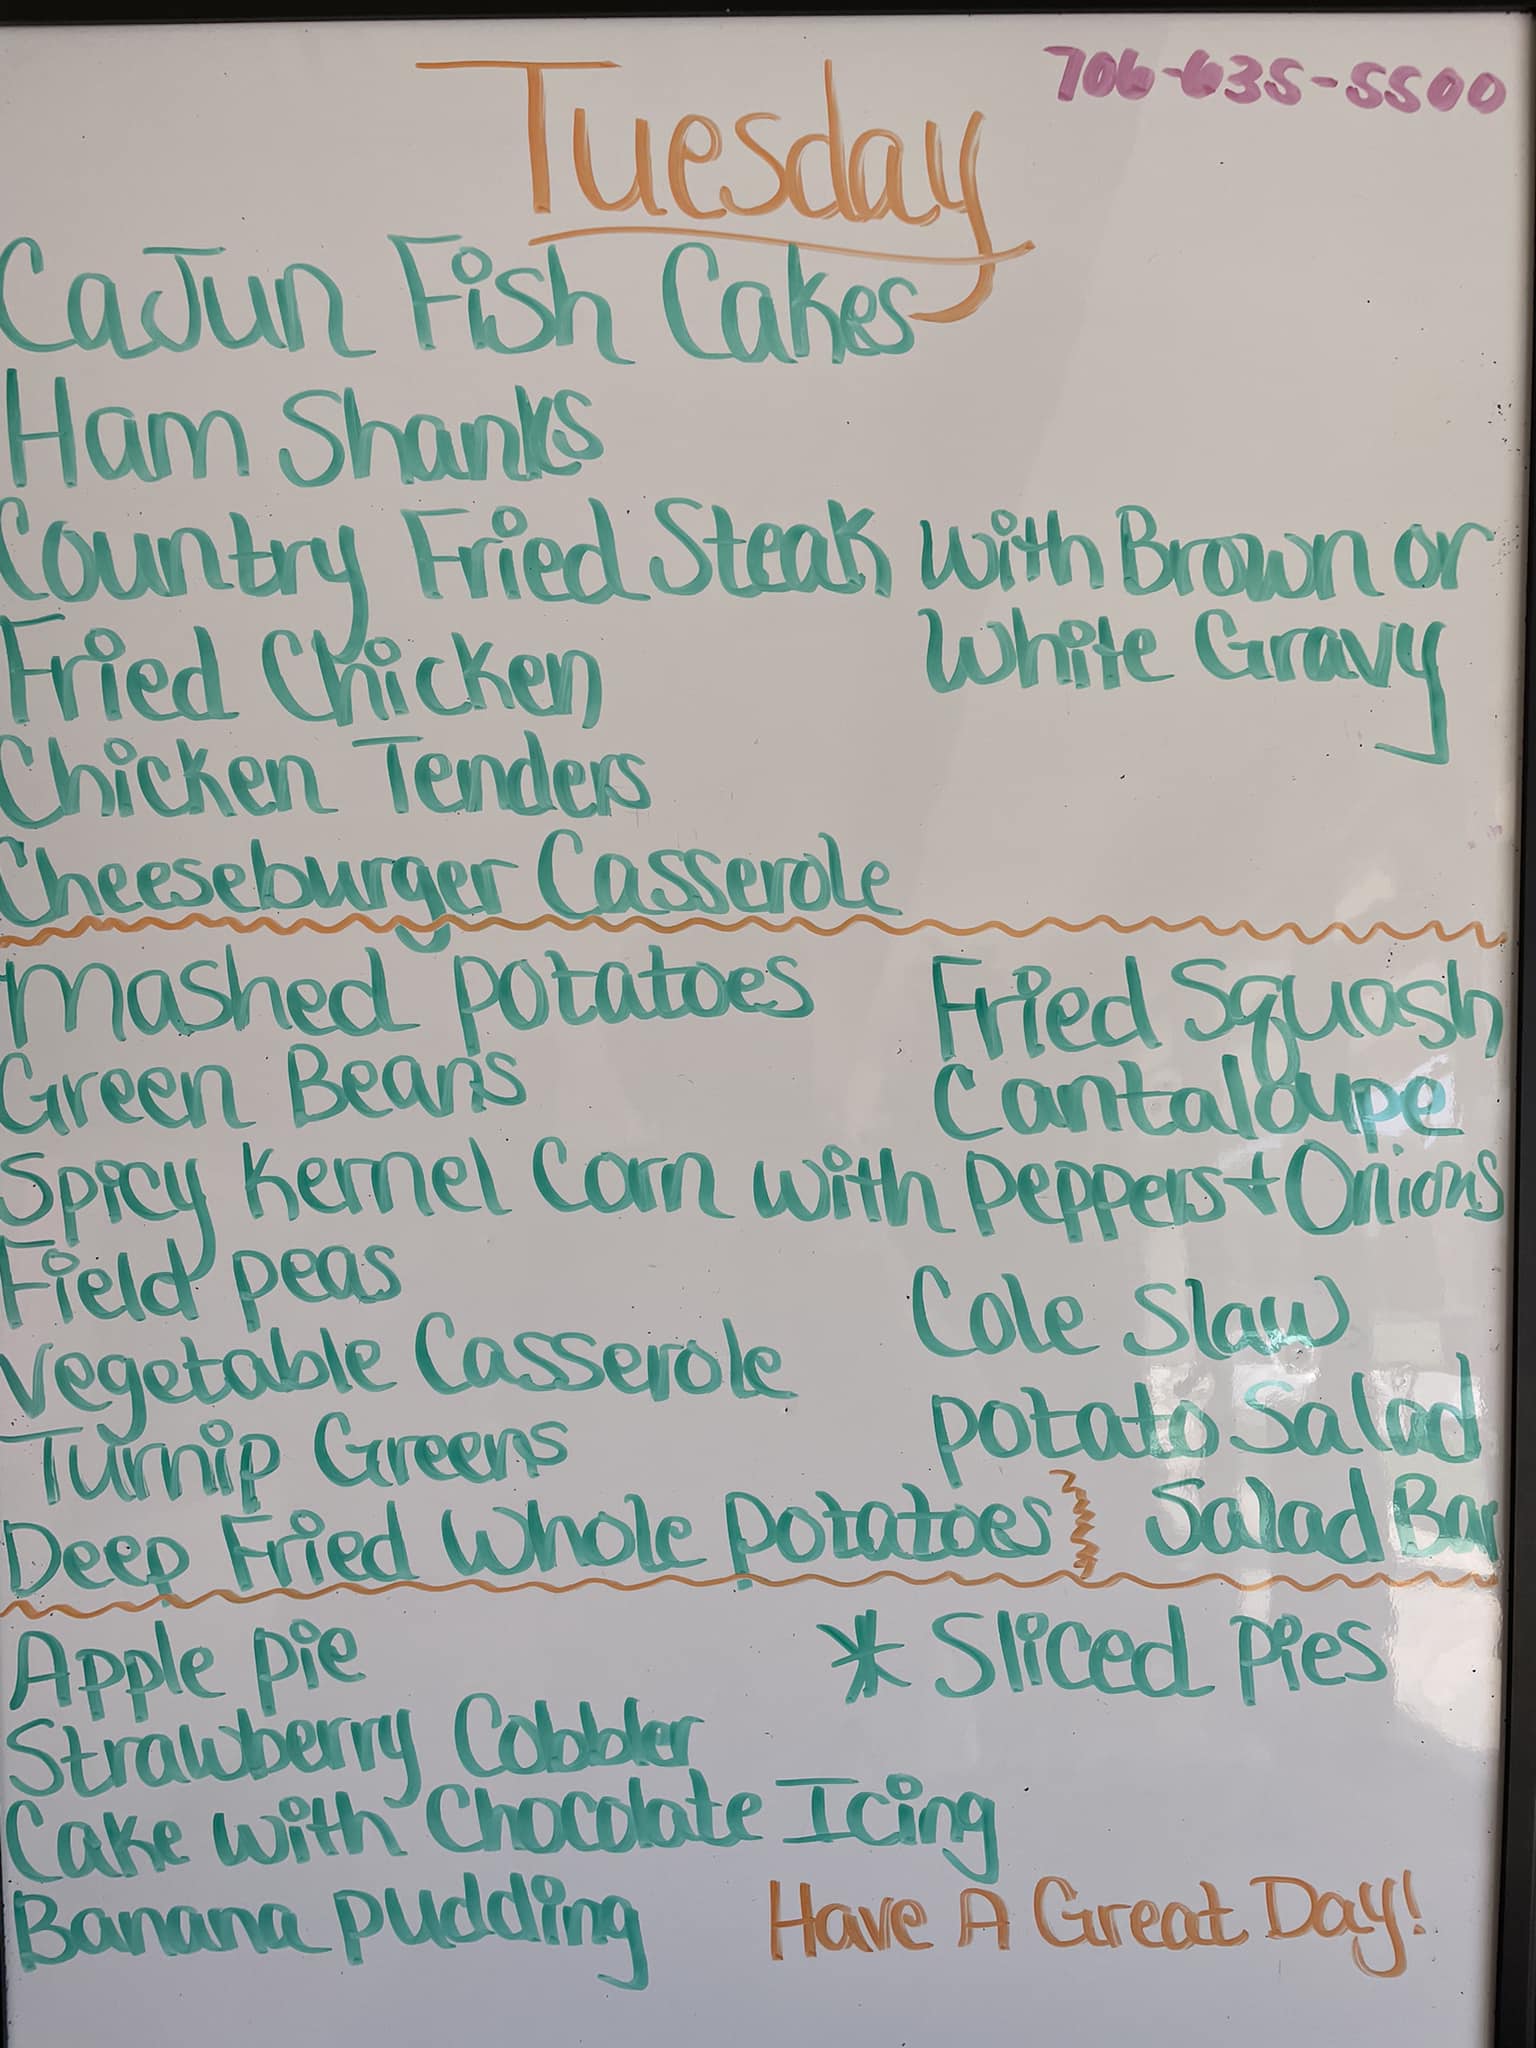 706-635-5500
Tuesday
CaJun Fish Cakes
Ham Shanks
Country Fried Steak with Brown or
White Gravy
Fried Chicken
Chicken Tenders
Cheeseburger Casserole
Mashed potatoes
Fried Squash
Green Beans
Cantaloupe
Spicy Kernel Corn with peppers + Onions
Field peas
Cole Slaw
Vegetable Casserole
potato Salad
Turnip Greens
Deep Fried Whole potatoes
Salad Bar
Apple pie
* Sliced pies
Strawberry Cobbler
Cake with Chocolate Icing
Banana pudding
Have A Great Day!